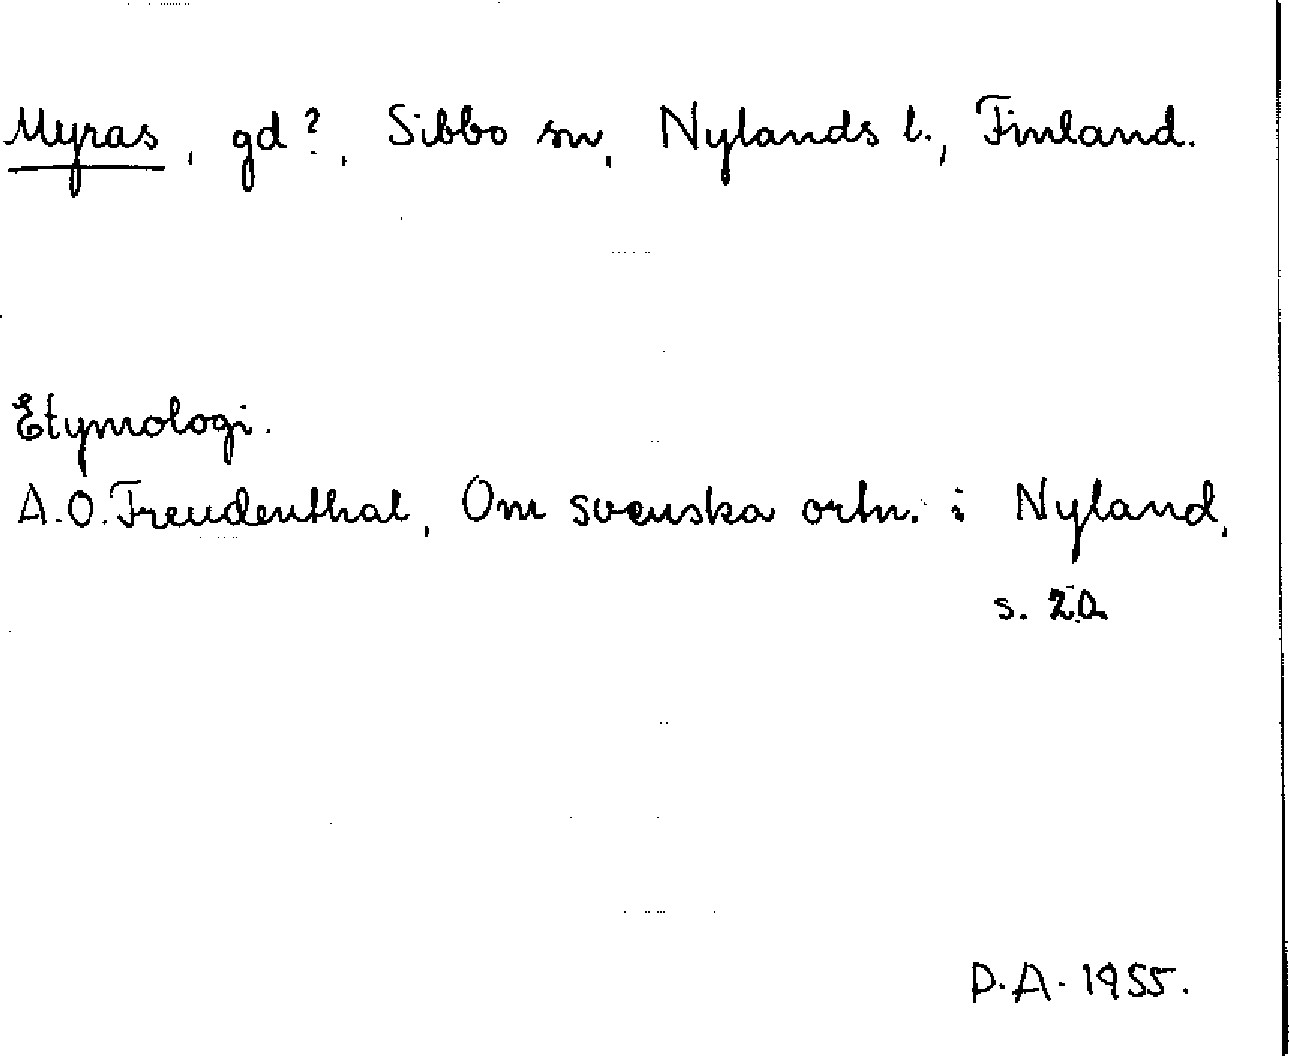 Myras, gd?, Sibbo sn, Nylands l., Finland.
Etymologi.
A.O. Freudenthal, Om svenska ortn. i Nyland,
s. 20
D.A. 1955.